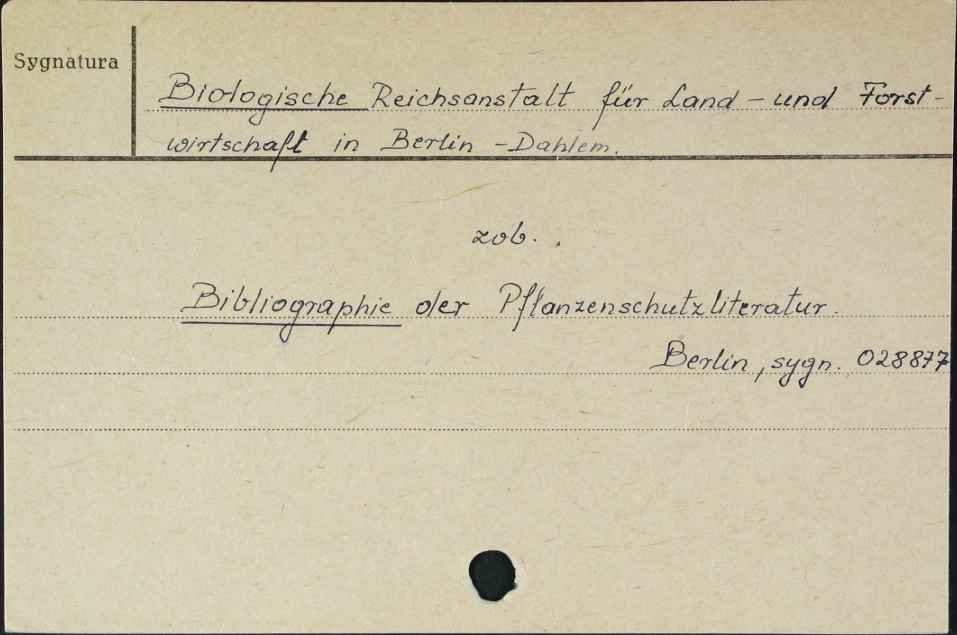 Sygnatura
Biologische Reichsanstalt für Land - und Forst-
wirtschaft in Berlin - Dahlem.
zob.
Bibliographie der Pflanzenschutzliteratur.
Berlin, sygn. 028877